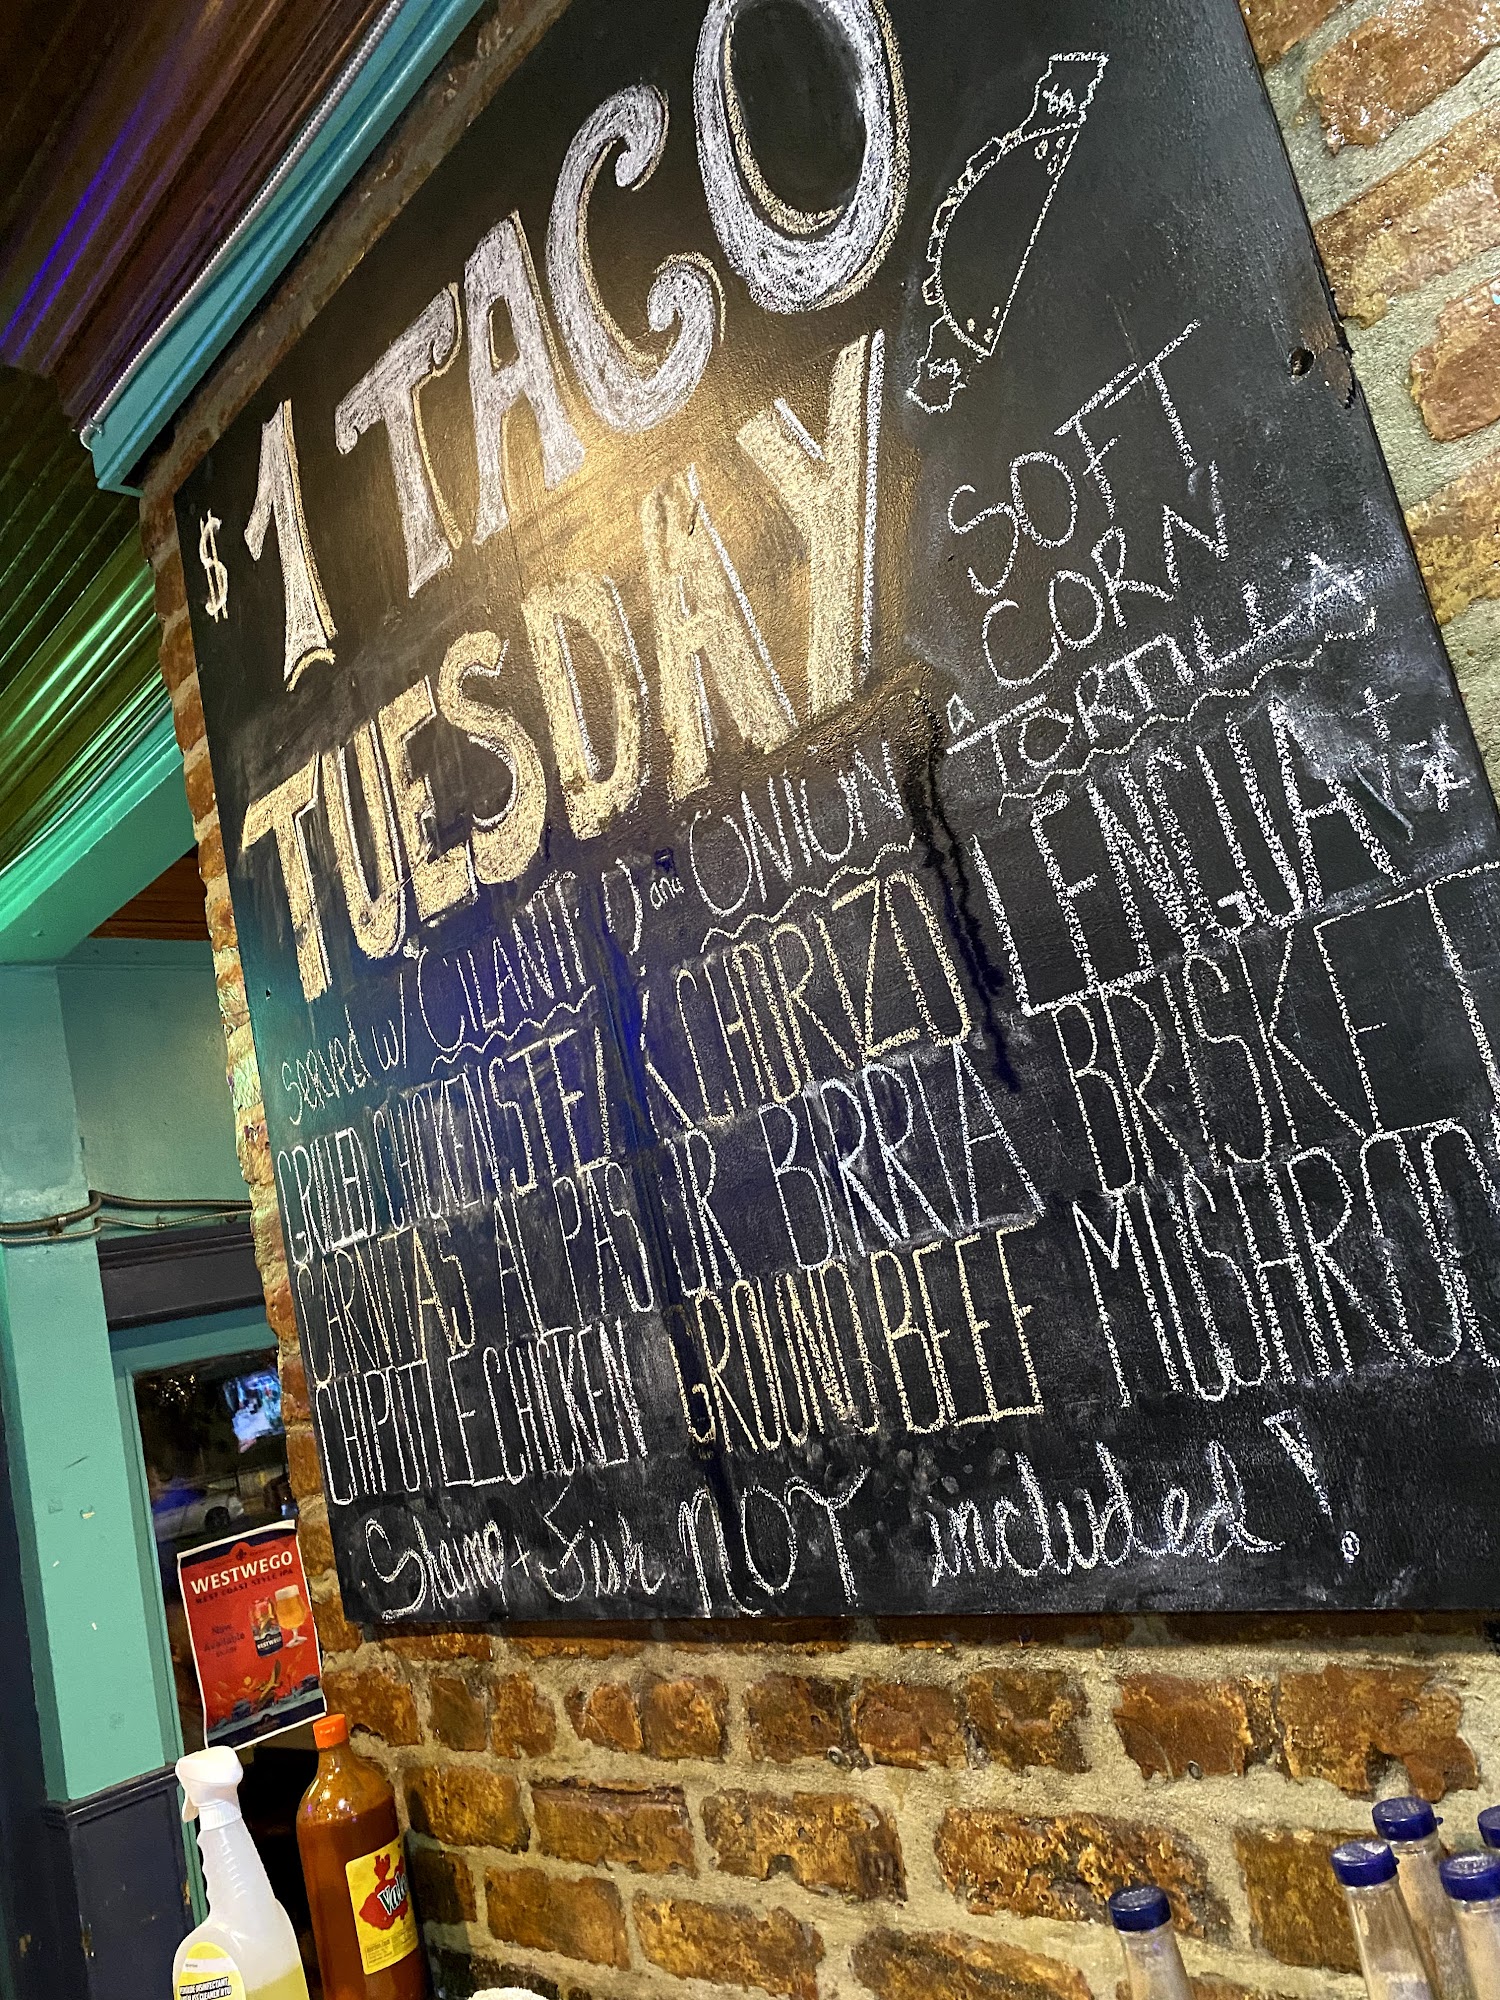 $1 TACO
TUESDAY
SOFT
CORN
TORTILLA
Served w/ CILANTRO and ONION
GRILLED CHICKEN STEAK CHORIZO LENGUA
CARNITAS AL PASTOR BIRRIA BRISKET
CHIPOTLE CHICKEN GROUND BEEF MUSHROO
Shrimp + Fish NOT included!
WESTWEGO
WEST COAST STYLE IPA
Now
Available